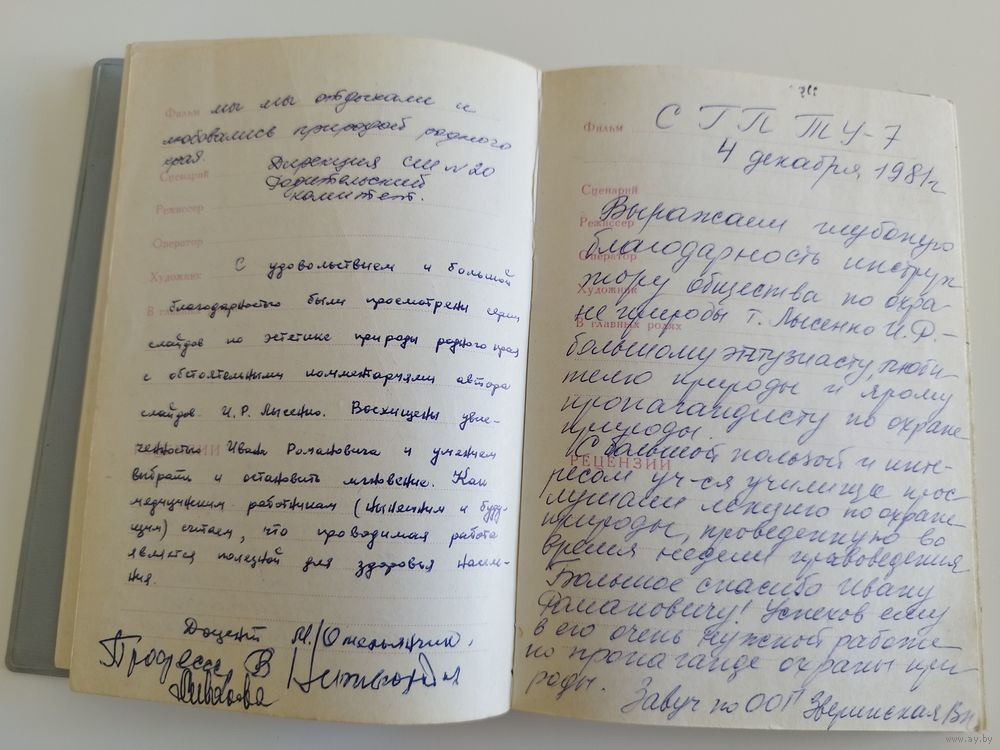 Фильм мы мы отдыхали и
любовались природой родного
края.
Дирекция СШ №20
Сценарий Родительский
комитет.
Режиссер
Оператор
Художник С удовольствием и большой
В главн благодарностью были просмотрены серии
слайдов по эстетике природы родного края
с обстоятельными комментариями автора
слайдов И.Р. Лысенко. Восхищены увле-
ченностью Ивана Романовича и умением
выбрать и остановить мгновение. Как
медицинским работникам (нынешним и буду-
щим) считаем, что проводимая работа
является полезной для здоровья населе-
ния.
Доцент М.
Профессор В
С ГПТУ-7
Фильм
4 декабря 1981 г
Сценарий
Выражаем глубокую
Режиссер
благодарность инструк
Оператор
тору общества по охра
Художник
не природы т. Лысенко И.Р.-
В главных ролях
большому энтузиасту, люби-
телю природы и ярому
пропагандисту по охране
природы.
С большой пользой и инте-
РЕЦЕНЗИИ
ресом уч-ся училища прос-
лушали лекцию по охране
природы, проведенную во
время недели правоведения
Большое спасибо Ивану
Романовичу! Успехов ему
в его очень нужной работе
по пропаганде охраны при-
роды.
Завуч по Зверинская
www.ay.by